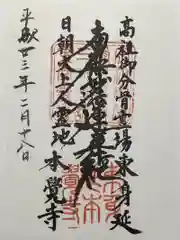 高祖御分骨霊場東身延
南無妙法蓮華経
日朝大上人霊地本覺寺
平成廿三年二月廿八日